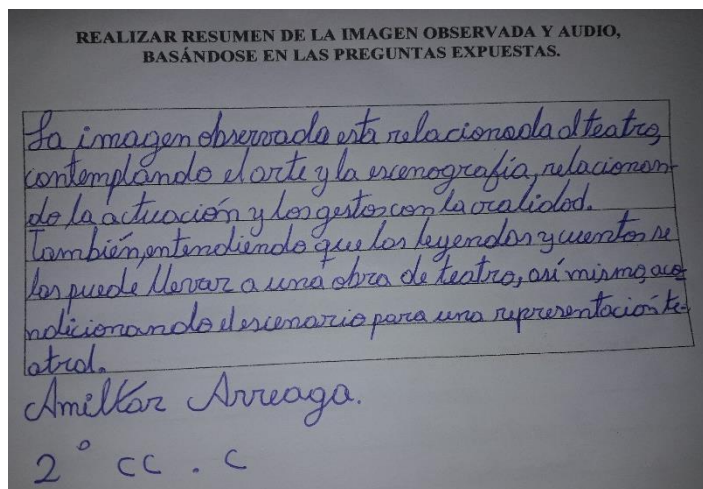 REALIZAR RESUMEN DE LA IMAGEN OBSERVADA Y AUDIO,
BASÁNDOSE EN LAS PREGUNTAS EXPUESTAS.
La imagen observada está relacionada al teatro,
contemplando el arte y la escenografía, relacionan-
do la actuación y los gestos con la oralidad.
También, entendiendo que las leyendas y cuentos se
los puede llevar a una obra de teatro, así mismo, aco-
ndicionando el escenario para una representación te-
atral.
Amilkar Arreaga.
2° CC . C